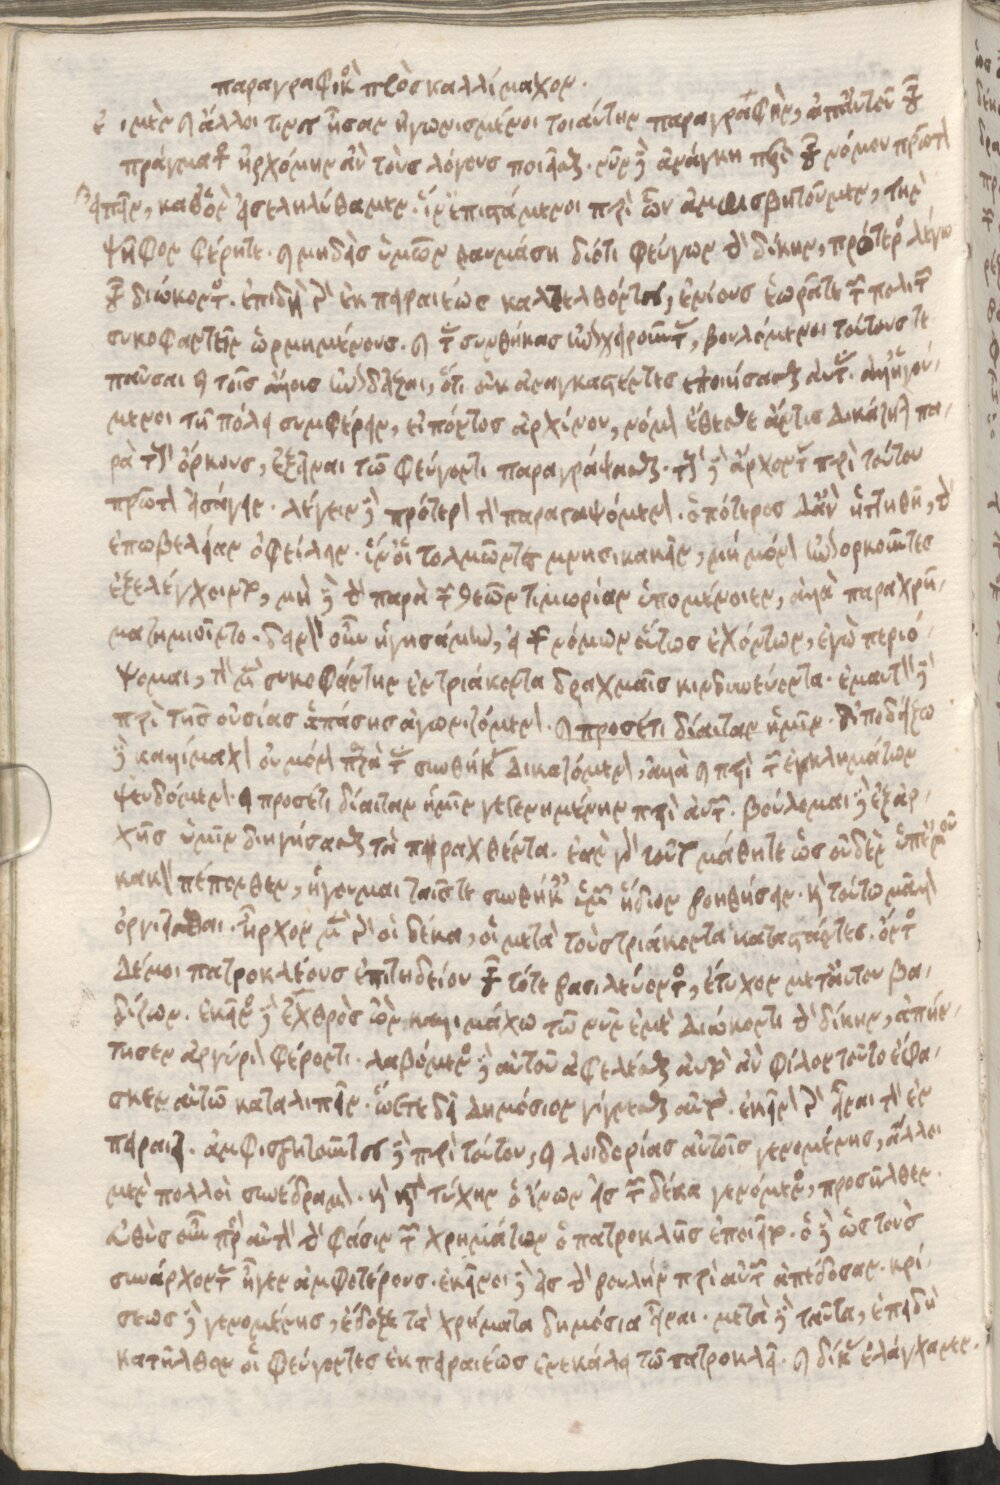 παραγραφικὸς πρὸς καλλίμαχον.
Εἰ μὲν καὶ ἄλλοι τινὲς ἦσαν ἠγωνισμένοι τοιαύτην παραγραφὴν, ἀπ' αὐτοῦ τοῦ
πράγματος ἠρχόμην ἂν τοὺς λόγους ποιεῖσθαι. νῦν δὲ ἀνάγκη περὶ τοῦ νόμου πρῶτον
εἰπεῖν, καθ' ὃν εἰσεληλύθαμεν. ἵν' ἐπιστάμενοι περὶ ὧν ἀμφισβητοῦμεν, τὴν
ψῆφον φέρητε. καὶ μηδεὶς ὑμῶν θαυμάσῃ διότι φεύγων τὴν δίκην, πρότερος λέγω
τοῦ διώκοντος. ἐπειδὴ γὰρ ἐκ πειραιέως κατελθόντες, ἐνίους ἑωρᾶτε τῶν πολιτῶν
συκοφαντεῖν ὡρμημένους. καὶ τὰς συνθήκας λύειν ἐπιχειροῦντας, βουλόμενοι τούτους τε
παῦσαι καὶ τοῖς ἄλλοις ἐπιδεῖξαι, ὅτι οὐκ ἀναγκασθέντες ἐποιήσασθε αὐτὰς. ἀλλ' ἡγού-
μενοι τῇ πόλει συμφέρειν, εἰπόντος ἀρχίνου, νόμον ἔθεσθε ἄν τις δικάζηται πα-
ρὰ τοὺς ὅρκους, ἐξεῖναι τῷ φεύγοντι παραγράψασθαι. τοὺς δὲ ἄρχοντας περὶ τούτου
πρῶτον εἰσάγειν. λέγειν δὲ πρότερον τὸν παραγραψόμενον. ὁπότερος δ' ἂν ἡττηθῇ, τὴν
ἐπωβελείαν ὀφείλειν. ἵν' οἱ τολμῶντες μνησικακεῖν, μὴ μόνον ἐπιορκοῦντες
ἐξελέγχοιντο, μὴ δὲ τὴν παρὰ τῶν θεῶν τιμωρίαν ὑπομένοιεν, ἀλλὰ παραχρῆ-
μα ζημιοῖντο. δεινὸν οὖν ἡγησάμην, εἰ τῶν νόμων οὕτως ἐχόντων, ἐγὼ περιό-
ψομαι, τὸν μὲν συκοφάντην ἐν τριάκοντα δραχμαῖς κινδυνεύοντα. ἐμαυτὸν δὲ
περὶ τῆς οὐσίας ἁπάσης ἀγωνιζόμενον. καὶ προσέτι δίαιταν ἡμῖν. ἀποδείξω
δὲ καλλίμαχον οὐ μόνον παρὰ τὰς συνθήκας δικαζόμενον, ἀλλὰ καὶ περὶ τῶν ἐγκλημάτων
ψευδόμενον. καὶ προσέτι δίαιταν ἡμῖν γεγενημένην περὶ αὐτῶν. βούλομαι δὲ ἐξ ἀρ-
χῆς ὑμῖν διηγήσασθαι τὰ πραχθέντα. ἐὰν γὰρ τοῦτο μάθητε ὡς οὐδὲν ὑπ' ἐμοῦ
κακὸν πέπονθεν, ἡγοῦμαι ταῖς τε συνθήκαις ὑμᾶς ἥδιον βοηθήσειν. καὶ τούτῳ μᾶλλον
ὀργιεῖσθαι. ἦρχον μὲν γὰρ οἱ δέκα, οἱ μετὰ τοὺς τριάκοντα καταστάντες. ὄντος
δέ μοι πατροκλέους ἐπιτηδείου τοῦ τότε βασιλεύοντος, ἔτυχον μετ' αὐτοῦ βα-
δίζων. ἐκεῖνος δὲ ἐχθρὸς ὢν καλλιμάχῳ τῷ νῦν ἐμὲ διώκοντι τὴν δίκην, ἀπήν-
τησεν ἀργύριον φέροντι. λαβόμενος δὲ αὐτοῦ ἀφελέσθαι αὐτὸ ἂν φίλον τοῦτο ἔφα-
σκεν αὐτῷ καταλιπεῖν. ὥστε δὴ δημόσιον γίγνεσθαι αὐτό. ἐκεῖνον γὰρ εἶναι τὸν ἐν
πειραιεῖ. ἀμφισβητοῦντες δὲ περὶ τούτου, καὶ λοιδορίας αὐτοῖς γενομένης, ἄλλοι
μὲν πολλοὶ συνέδραμον. καὶ κατὰ τύχην ῥίνων εἷς τῶν δέκα γενόμενος, προσῆλθεν.
εὐθὺς οὖν πρὸς αὐτὸν τὴν φάσιν τῶν χρημάτων ὁ πατροκλῆς ἐποιεῖτο. ὁ δὲ ὡς τοὺς
συνάρχοντας ἦγεν ἀμφοτέρους. ἐκεῖνοι δὲ εἰς τὴν βουλὴν περὶ αὐτῶν ἀπέδοσαν. κρί-
σεως δὲ γενομένης, ἔδοξε τὰ χρήματα δημόσια εἶναι. μετὰ δὲ ταῦτα, ἐπειδὴ
κατῆλθον οἱ φεύγοντες ἐκ πειραιέως ἐνεκάλει τῷ πατροκλεῖ. καὶ δίκας ἐλάγχανεν.